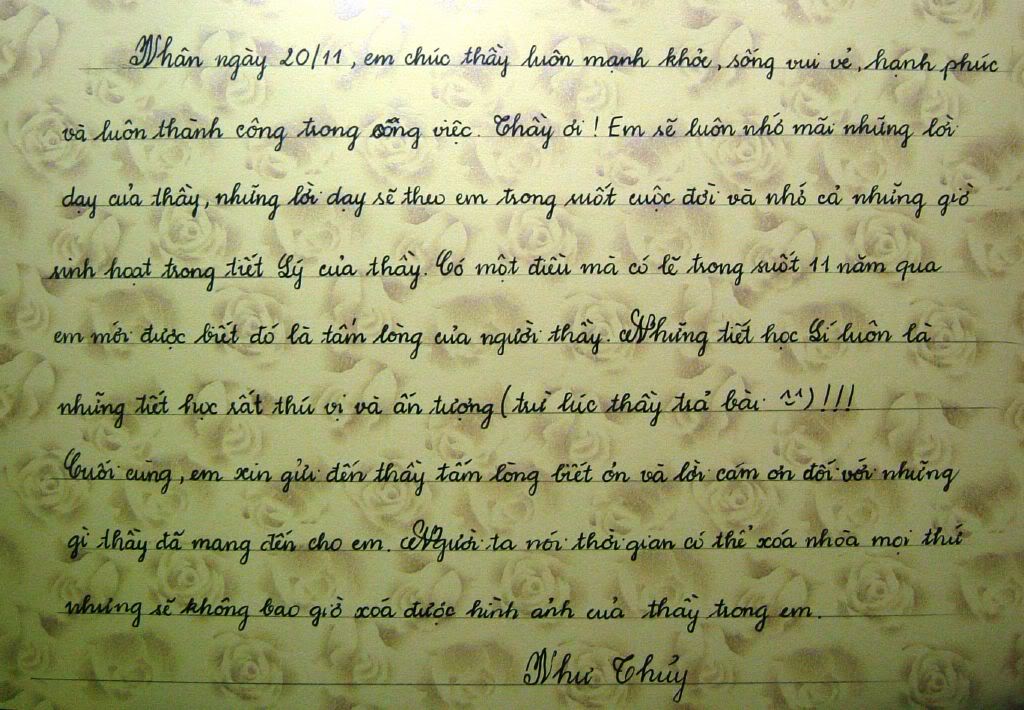 Nhân ngày 20/11, em chúc thầy luôn mạnh khỏe, sống vui vẻ, hạnh phúc
và luôn thành công trong công việc. Thầy ơi! Em sẽ luôn nhớ mãi những lời
dạy của thầy, những lời dạy sẽ theo em trong suốt cuộc đời và nhớ cả những giờ
sinh hoạt trong tiết Lý của thầy. Có một điều mà có lẽ trong suốt 11 năm qua
em mới được biết đó là tấm lòng của người thầy. Những tiết học Lí luôn là
những tiết học rất thú vị và ấn tượng (trừ lúc thầy trả bài ^^)!!!
Cuối cùng, em xin gửi đến thầy tấm lòng biết ơn và lời cám ơn đối với những
gì thầy đã mang đến cho em. Người ta nói thời gian có thể xóa nhòa mọi thứ
nhưng sẽ không bao giờ xoá được hình ảnh của thầy trong em.
Như Thủy